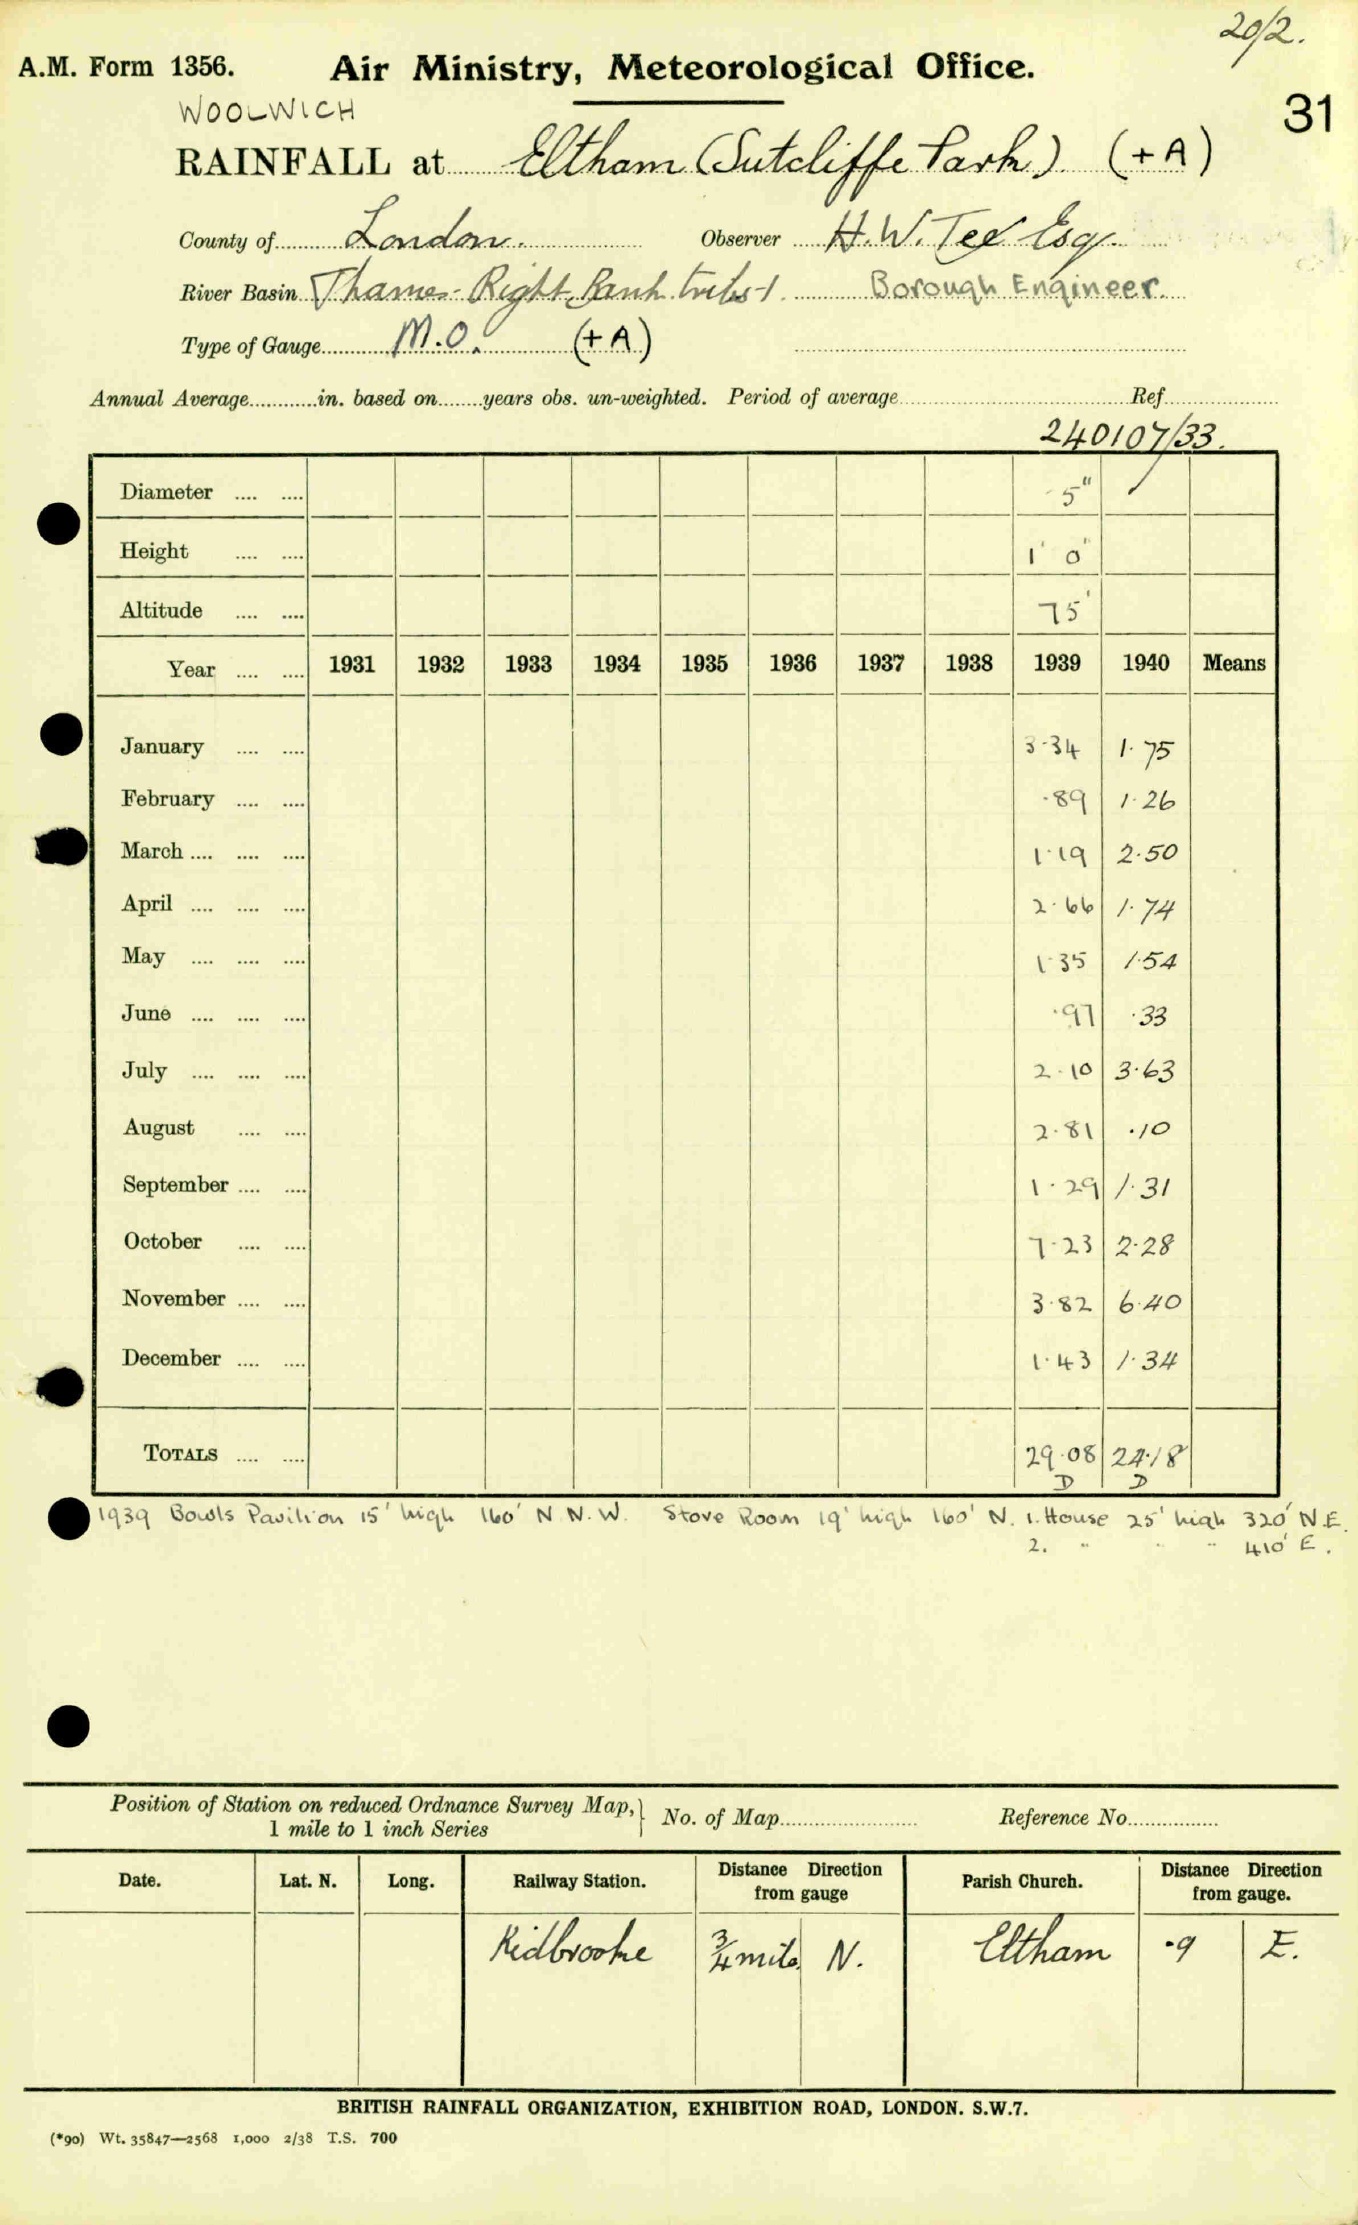 20/2.
A.M. Form 1356. Air Ministry, Meteorological Office.
31
WOOLWICH
RAINFALL at Eltham (Sutcliffe Park). (+A)
County of London. Observer H.W. Tee Esq.
River Basin Thames - Right Bank tribs-1. Borough Engineer.
Type of Gauge M.O. (+A)
Annual Average............in. based on.......years obs. un-weighted. Period of average Ref
240107/33.
Diameter .... .... 5" ✓
Height .... .... 1' 0"
Altitude .... .... 75'
Year .... .... 1931 1932 1933 1934 1935 1936 1937 1938 1939 1940 Means
January .... .... 3.34 1.75
February .... .... .89 1.26
March .... .... .... 1.19 2.50
April .... .... .... 2.66 1.74
May .... .... .... 1.35 1.54
June .... .... .... .97 .33
July .... .... .... 2.10 3.63
August .... .... 2.81 .10
September .... .... 1.29 1.31
October .... .... 7.23 2.28
November .... .... 3.82 6.40
December .... .... 1.43 1.34
TOTALS .... .... 29.08 24.18
D D
1939 Bowls Pavilion 15' high 160' N.N.W. Store Room 19' high 160' N. 1. House 25' high 320' N.E.
2. " " " 410' E.
Position of Station on reduced Ordnance Survey Map, } No. of Map Reference No.
1 mile to 1 inch Series
Date. Lat. N. Long. Railway Station. Distance Direction from gauge Parish Church. Distance Direction from gauge.
Kidbrooke 3/4 mile N. Eltham .9 E.
BRITISH RAINFALL ORGANIZATION, EXHIBITION ROAD, LONDON. S.W.7.
(*90) Wt. 35847—2568 1,000 2/38 T.S. 700